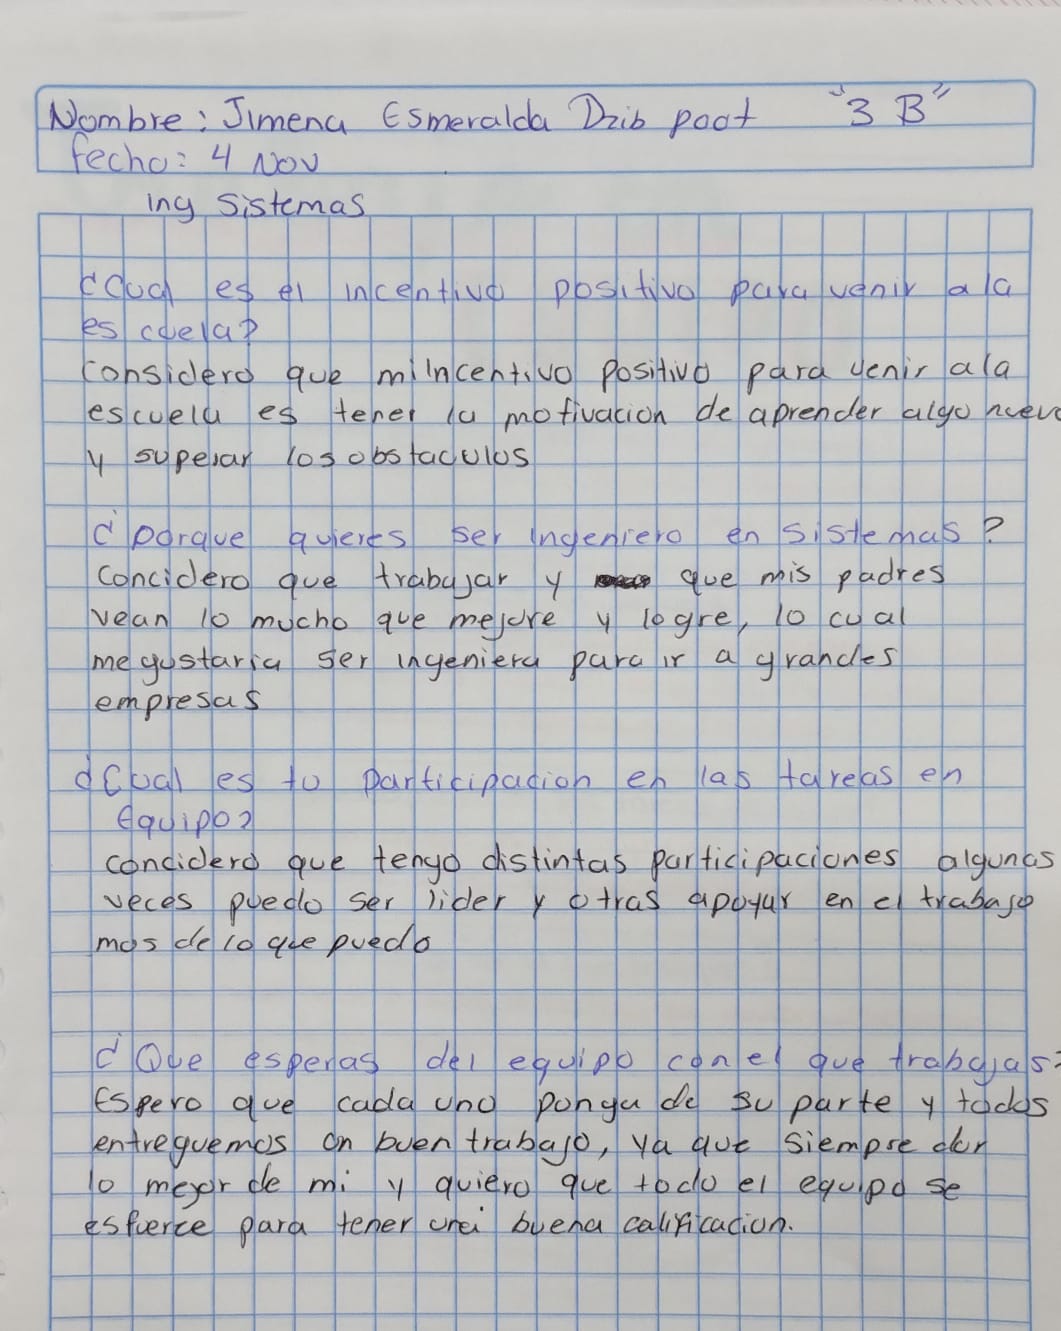 Nombre: Jimena Esmeralda Dzib poot "3 B"
fecha: 4 Nov
ing sistemas
¿Cual es el incentivo positivo para venir ala
escuela?
Considero que mi incentivo positivo para venir ala
escuela es tener la motivacion de aprender algo nuevo
y superar los obstaculos
¿porque quieres ser ingeniero en sistemas?
Concidero que trabajar y que mis padres
vean lo mucho que mejore y logre, lo cual
me gustaria ser ingeniera para ir a grandes
empresas
¿Cual es tu participacion en las tareas en
equipo?
concidero que tengo distintas participaciones algunas
veces puedo ser lider y otras apoyar en el trabajo
mas de lo que puedo
¿Que esperas del equipo con el que trabajas?
Espero que cada uno ponga de su parte y todos
entreguemos un buen trabajo, ya que siempre doy
lo mejor de mi y quiero que todo el equipo se
esfuerce para tener una buena calificacion.